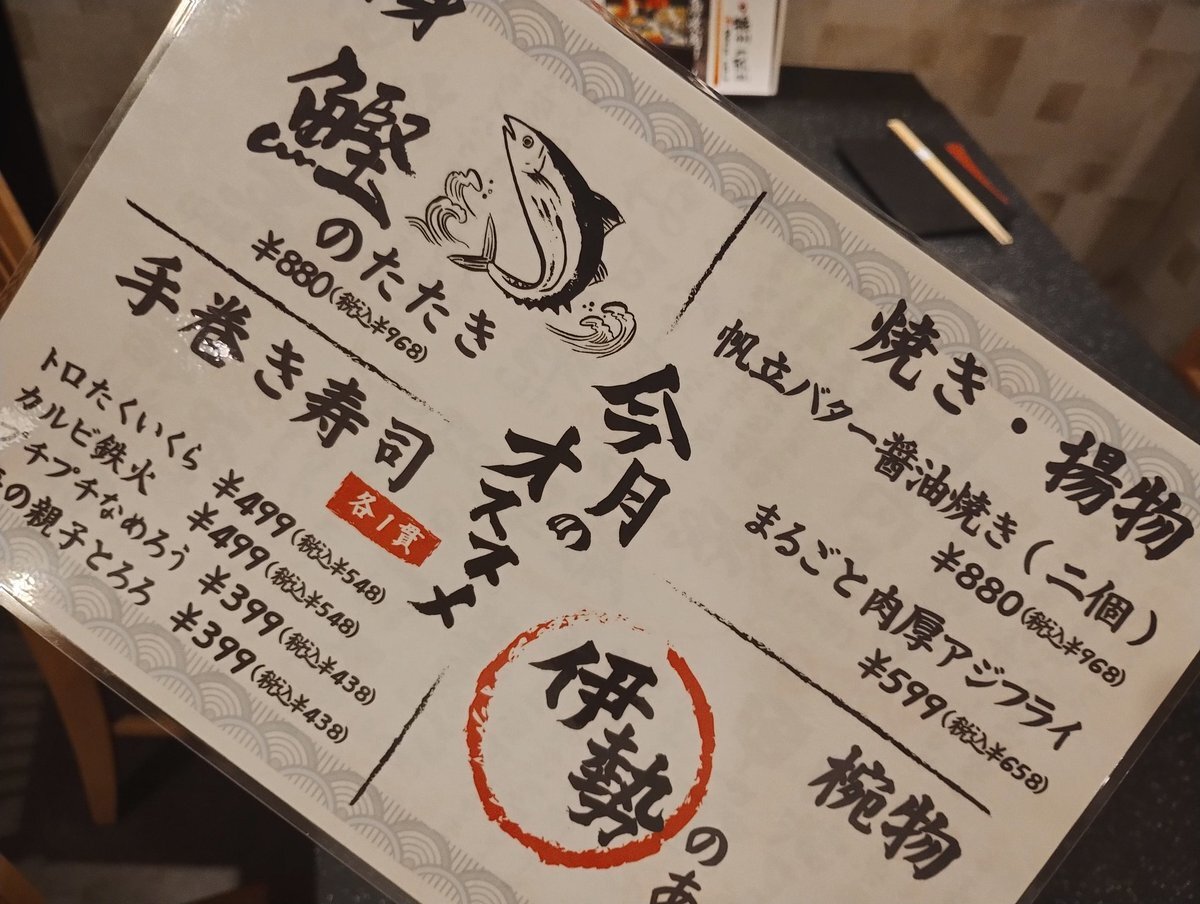 身
鰹
のたたき
¥880(税込¥968)
手巻き寿司
各1貫
トロたくいくら ¥499(税込¥548)
カルビ鉄火 ¥499(税込¥548)
チプチなめろう ¥399(税込¥438)
の親子とろろ ¥399(税込¥438)
今月の
オススメ
焼き・揚物
帆立バター醤油焼き(二個)
¥880(税込¥968)
まるごと肉厚アジフライ
¥599(税込¥658)
椀物
伊勢
のあ